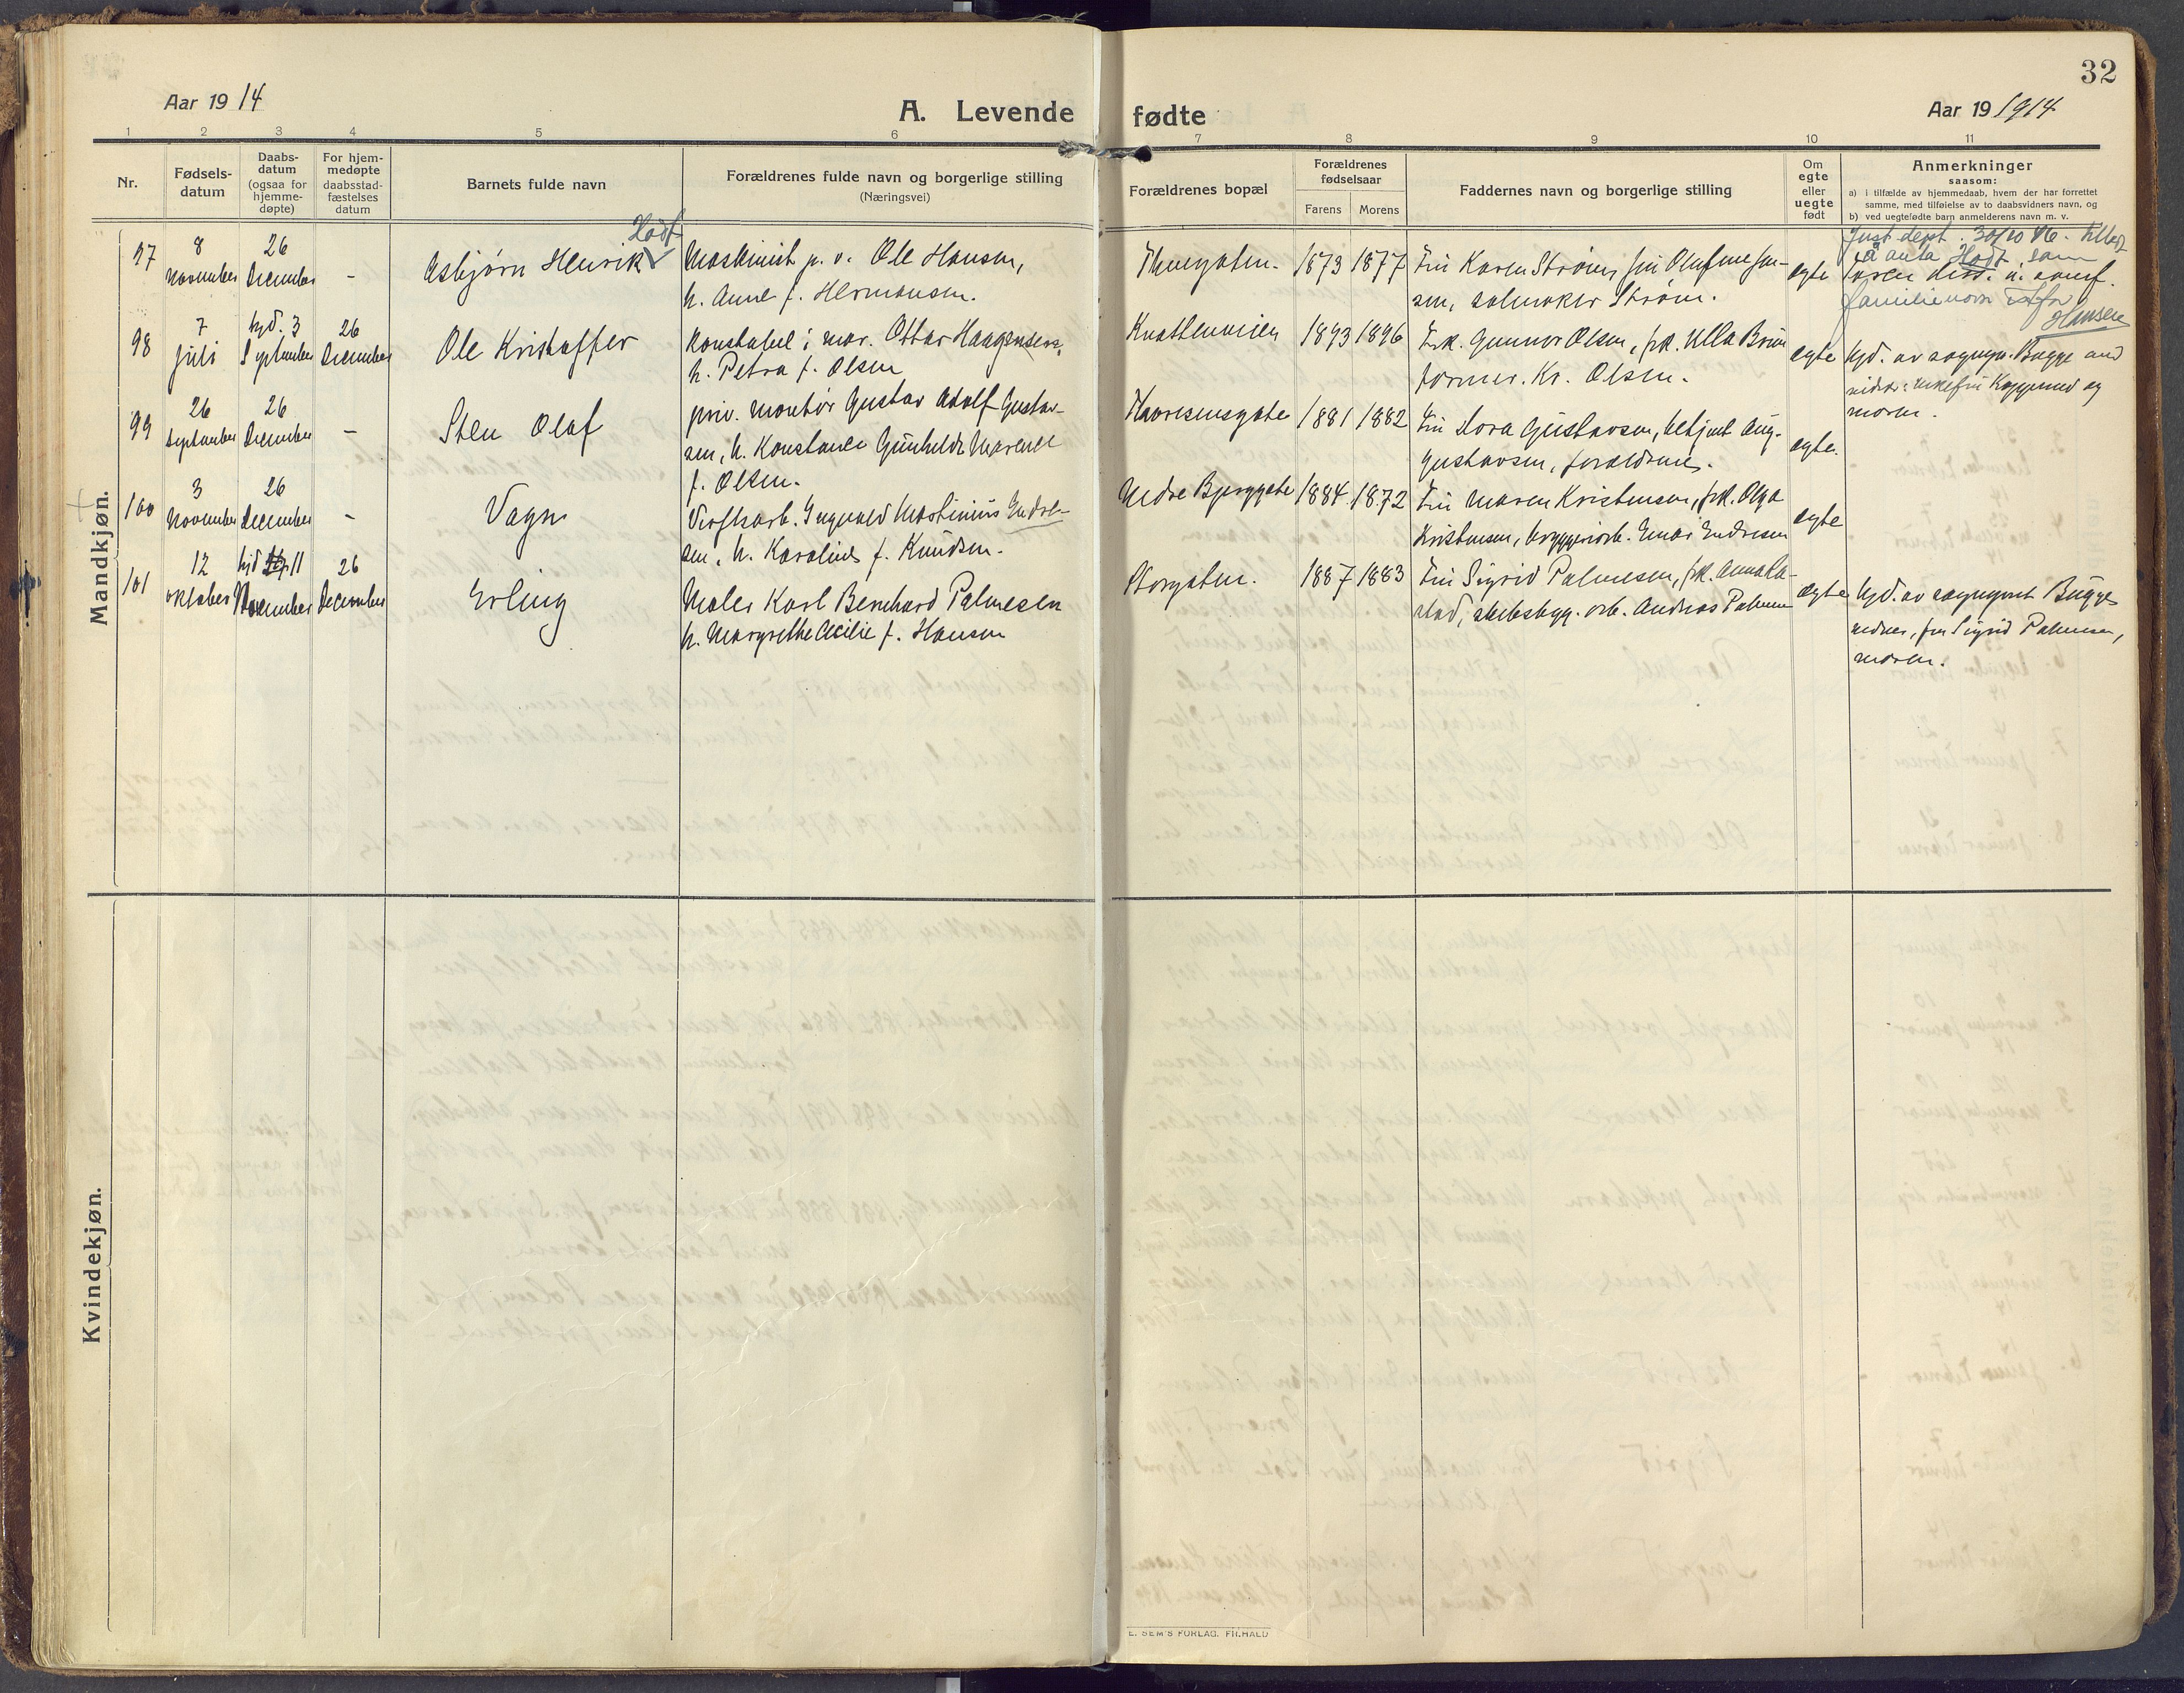 32
Aar 1914
A. Levende fødte
Aar 19 1914
1 2 3 4 5 6 7 8 9 10 11
Nr.
Fødsels-
datum
Daabs-
datum
(ogsaa for
hjemme-
døpte)
For hjem-
medøpte
daabsstad-
fæstelses
datum
Barnets fulde navn
Forældrenes fulde navn og borgerlige stilling
(Næringsvei)
Forældrenes bopæl
Forældrenes
fødselsaar
Farens Morens
Faddernes navn og borgerlige stilling
Om
egte
eller
uegte
født
Anmerkninger
saasom:
a) i tilfælde av hjemmedaab, hvem der har forrettet
samme, med tilføielse av to daabsvidners navn, og
b) ved uegtefødte barn anmelderens navn m. v.
Mandkjøn.
97
8
November
26
December
-
Hodt
Asbjørn Henrik
Maskinist p. v. Ole Hansen,
h. Anne f. Hermansen.
Thuegaten.
1873 1877
Fru Karen Strøm, fru Olufine Jen-
sen, seilmaker Strøm.
egte
Just.dept. 30/10 46. tillatt
å anta Hodt som
familienavn istfor
Hansen
98
7
juli
hjd. 3
September
26
December
Ole Kristoffer
Konstabel i mar. Ottar Haagensen,
h. Petra f. Olsen
Knatteneien
1893 1896
Frk. Gunnor Olsen, frk. Ulla Bruun
former. Kr. Olsen.
egte
hjd. av sognepr. Bugge and
moren.
99
26
September
26
December
-
Sten Olaf
priv. montør Gustav Adolf Gustav-
sen, h. Konstance Gunhilde Marenel
f. Olsen.
1881 1882
Fru Lora Gustavsen, betjent Aug.
Gustavsen, forældrene.
egte.
100
3
November
26
December
-
Vagn
Verftsarb. Ingvald Martinius Endre-
sen, h. Karoline f. Knudsen.
Nedre Bjerggate
1884 1872
Fru Maren Kristensen, frk. Olga
Kristensen, bryggeriarb. Einar Endresen
egte
101
12
oktober
hjd 11
November
26
December
Erling
Maler Karl Bernhard Palmesen
h. Margrethe Cecilie f. Hansen
Storgaten.
1887 1883
Fru Sigrid Palmesen, frk. Anna Ra-
stad, skibsbygg. arb. Andreas Palmesen
egte
hjd. av sogneprest Bugge
vidner, fru Sigrid Palmesen,
moren.
Kvindekjøn.
E. SEM'S FORLAG. FR.HALD